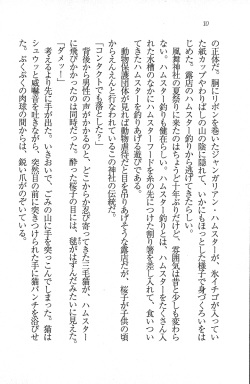 10
の正体だ。胴にリボンを巻いたジャンガリアン・ハムスターが、氷イチゴが入ってい
た紙カップやわりばしの山の陰に隠れて、いかにもほっとした様子で身づくろいをは
じめた。露店のハムスター釣りから逃げてきたらしい。
風舞神社の夏祭りに来たのはちょうど十年ぶりだけど、雰囲気は昔と少しも変わら
ない。ハムスター釣りも健在らしい。ハムスター釣りとは、ハムスターをたくさん入
れた水槽のなかにハムスターフードを糸の先につけた割り箸を差し入れて、食いつい
てきたハムスターを吊りあげる遊びである。
動物愛護団体が見れば動物虐待だと目を吊りあげそうな露店だが、桜子が子供の頃
からえんえんと行なわれているこの神社の伝統だ。
コンタクトでも落としたの、と
背後から男性の声がかかるのと、どこからか忍び寄ってきた三毛猫が、ハムスター
に飛びかかったのは同時だった。酔った桜子の目には、毬がはずんだように見えた。
「ダメッ！」
考えるより先に手が出た。いきおいで、ごみの山に手を突っこんでしまった。猫は
シュウッと威嚇音を吐きながら、突然目の前に突き出された手に猫パンチを浴びせ
た。ぷくぷくの肉球の間からは、鋭い爪がのぞいている。